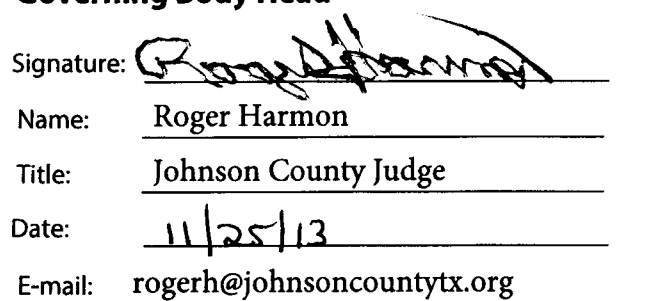 Governing Body Head
Signature: Roger Harmon
Name: Roger Harmon
Title: Johnson County Judge
Date: 11/25/13
E-mail: rogerh@johnsoncountytx.org